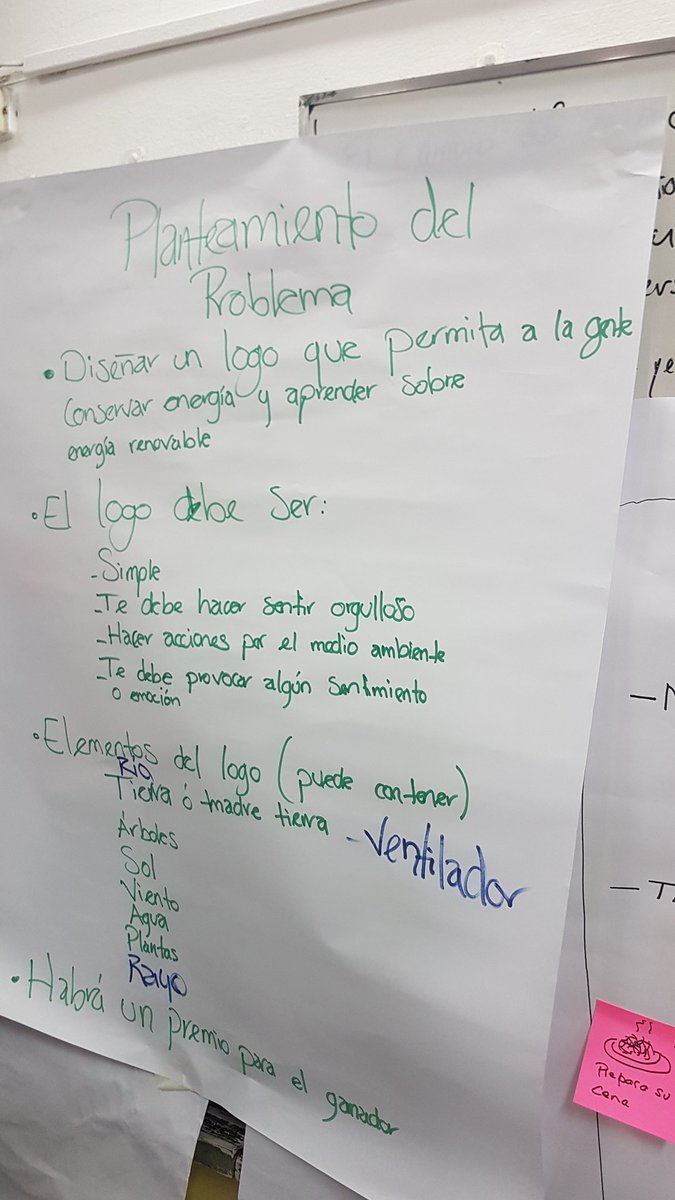 Planteamiento del
Problema
• Diseñar un logo que permita a la gente
conservar energía y aprender sobre
energía renovable
• El logo debe ser:
- Simple
- Te debe hacer sentir orgulloso
- Hacer acciones por el medio ambiente
- Te debe provocar algún sentimiento
o emoción
• Elementos del logo (puede contener)
Río
Tierra ó madre tierra
- Ventilador
Árboles
Sol
Viento
Agua
Plantas
Rayo
• Habrá un premio para el ganador
Prepara su
cena